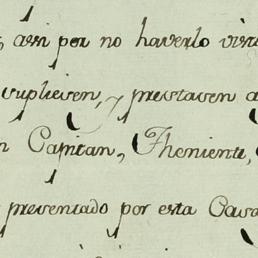 , asi por no haverlo vis
suplicen, y prestasen a
n Capitan, Theniente,
presentado por esta Cava